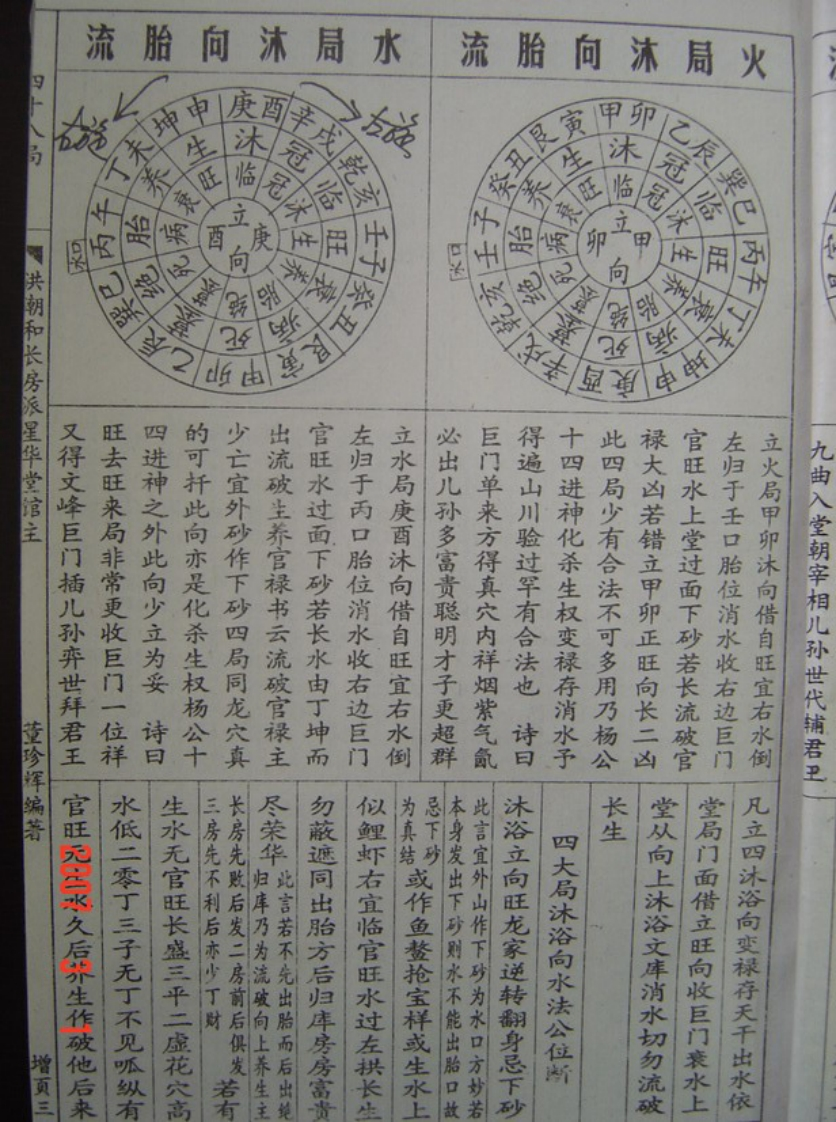 火局沐向胎流
水局沐向胎流
甲卯
乙辰
巽巳
丙午
丁未
坤申
庚酉
辛戌
乾亥
壬子
癸丑
艮寅
沐
冠
临
旺
衰
病
死
墓
绝
胎
养
生
临
冠
沐
生
养
胎
绝
墓
死
病
衰
旺
立甲向卯
水口
庚酉
辛戌
乾亥
壬子
癸丑
艮寅
甲卯
乙辰
巽巳
丙午
丁未
坤申
沐
冠
临
旺
衰
病
死
墓
绝
胎
养
生
临
冠
沐
生
养
胎
绝
墓
死
病
衰
旺
立庚向酉
水口
立火局甲卯沐向借自旺宜右水倒
左归于壬口胎位消水收右边巨门
官旺水上堂过面下砂若长流破官
禄大凶若错立甲卯正旺向长二凶
此四局少有合法不可多用乃杨公
十四进神化杀生权变禄存消水予
得遍山川验过罕有合法也 诗曰
巨门单来方得真穴内祥烟紫气氤
必出儿孙多富贵聪明才子更超群
立水局庚酉沐向借自旺宜右水倒
左归于丙口胎位消水收右边巨门
官旺水过面下砂若长水由丁坤而
出流破生养官禄书云流破官禄主
少亡宜外砂作下砂四局同龙穴真
的可扦此向亦是化杀生权杨公十
四进神之外此向少立为妥 诗曰
旺去旺来局非常更收巨门一位祥
又得文峰巨门插儿孙弈世拜君王
凡立四沐浴向变禄存天干出水依
堂局门面借立旺向收巨门衰水上
堂从向上沐浴文库消水切勿流破
长生
四大局沐浴向水法公位断
沐浴立向旺龙家逆转翻身忌下砂
此言宜外山作下砂为水口方妙若
本身发出下砂则水不能出胎口故
忌下砂
为真结
或作鱼鳌抢宝样或生水上
似鲤虾右宜临官旺水过左拱长生
勿蔽遮同出胎方后归库房房富贵
尽荣华
此言若不先出胎而后出绝
归库乃为流破向上养生主
长房先败后发二房前后俱发
三房先不利后亦少丁财
若有
生水无官旺长盛三平二虚花穴高
水低二零丁三子无丁不见呱纵有
官旺无生水久后养生作破他后来
四十八局
洪朝和长房派星华堂馆主
董珍辉编著
增页三
九曲入堂朝宰相儿孙世代辅君王
2007 3 1